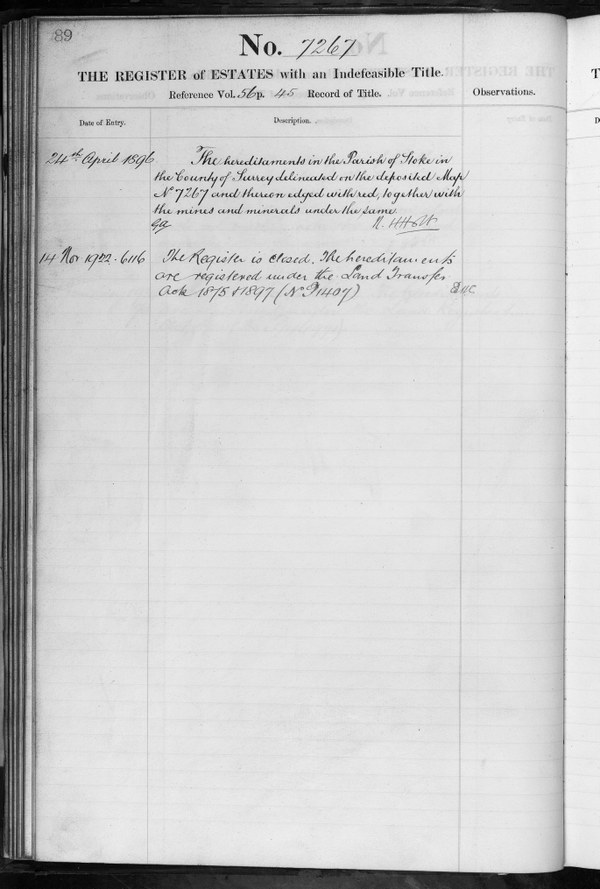 89
No. 7267
THE REGISTER of ESTATES with an Indefeasible Title.
Reference Vol. 56 p. 45 Record of Title.
Observations.
Date of Entry.
Description.
24th April 1896
The hereditaments in the Parish of Stoke in
the County of Surrey delineated on the deposited Map
No 7267 and thereon edged with red, together with
the mines and minerals under the same
14 Nov 1922. 6116
The Register is closed. The hereditaments
are registered under the Land Transfer
Acts 1875 & 1897 (No P11407)